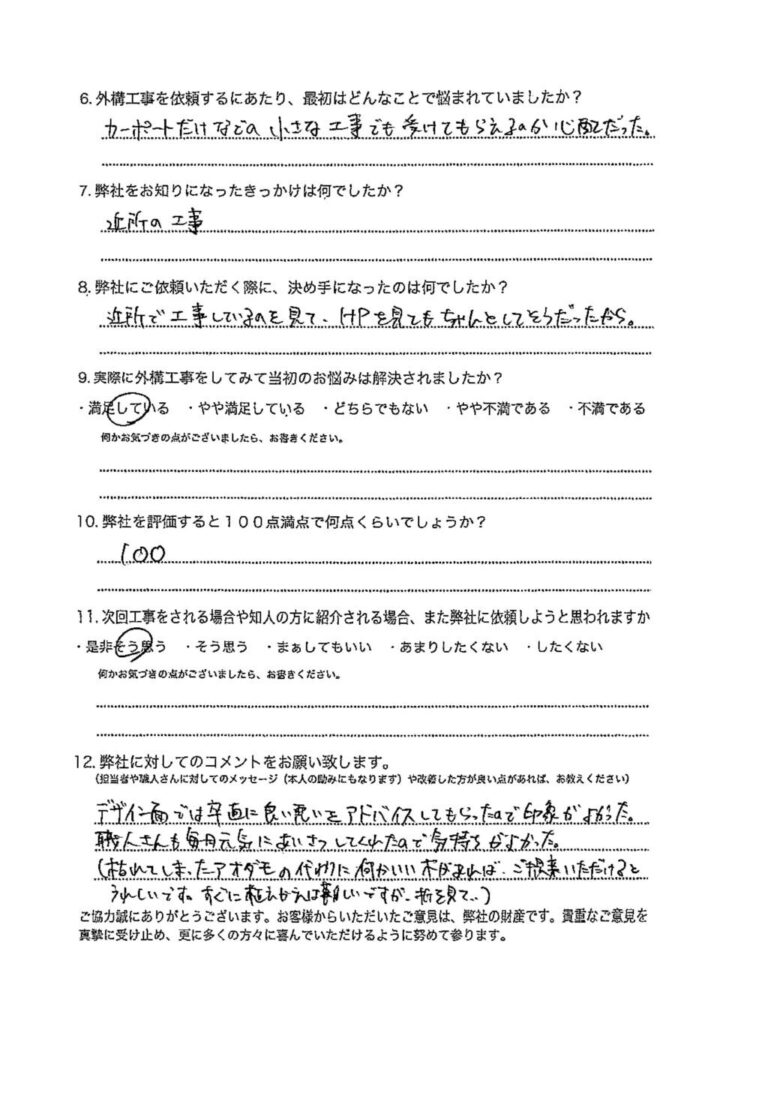 6. 外構工事を依頼するにあたり、最初はどんなことで悩まれていましたか？
カーポートだけなどの小さな工事でも受けてもらえるのか心配だった。
7. 弊社をお知りになったきっかけは何でしたか？
近所の工事
8. 弊社にご依頼いただく際に、決め手になったのは何でしたか？
近所で工事しているのを見て、HPを見てもちゃんとしてそうだったから。
9. 実際に外構工事をしてみて当初のお悩みは解決されましたか？
・満足している ・やや満足している ・どちらでもない ・やや不満である ・不満である
何かお気づきの点がございましたら、お書きください。
10. 弊社を評価すると１００点満点で何点くらいでしょうか？
100
11. 次回工事をされる場合や知人の方に紹介される場合、また弊社に依頼しようと思われますか
・是非そう思う ・そう思う ・まぁしてもいい ・あまりしたくない ・したくない
何かお気づきの点がございましたら、お書きください。
12. 弊社に対してのコメントをお願い致します。
（担当者や職人さんに対してのメッセージ（本人の励みにもなります）や改善した方が良い点があれば、お教えください）
デザイン面では率直に良い悪いをアドバイスしてもらったので印象がよかった。
職人さんも毎日元気にあいさつしてくれたので気持ちがよかった。
（枯れてしまったアオダモの代わりに何かいい木があれば、ご提案いただけると
うれしいです。すぐに植えかえは難しいですが、折を見て…）
ご協力誠にありがとうございます。お客様からいただいたご意見は、弊社の財産です。貴重なご意見を
真摯に受け止め、更に多くの方々に喜んでいただけるように努めて参ります。